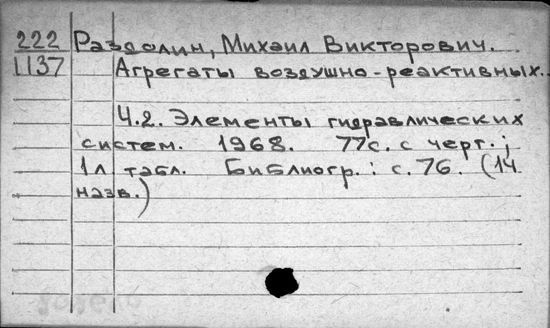 222 Раздолин, Михаил Викторович.
1137 Агрегаты воздушно-реактивных..
Ч.2. Элементы гидравлических
систем. 1968. 77с. с черт.;
1л табл. Библиогр.: с.76. (14
назв.)